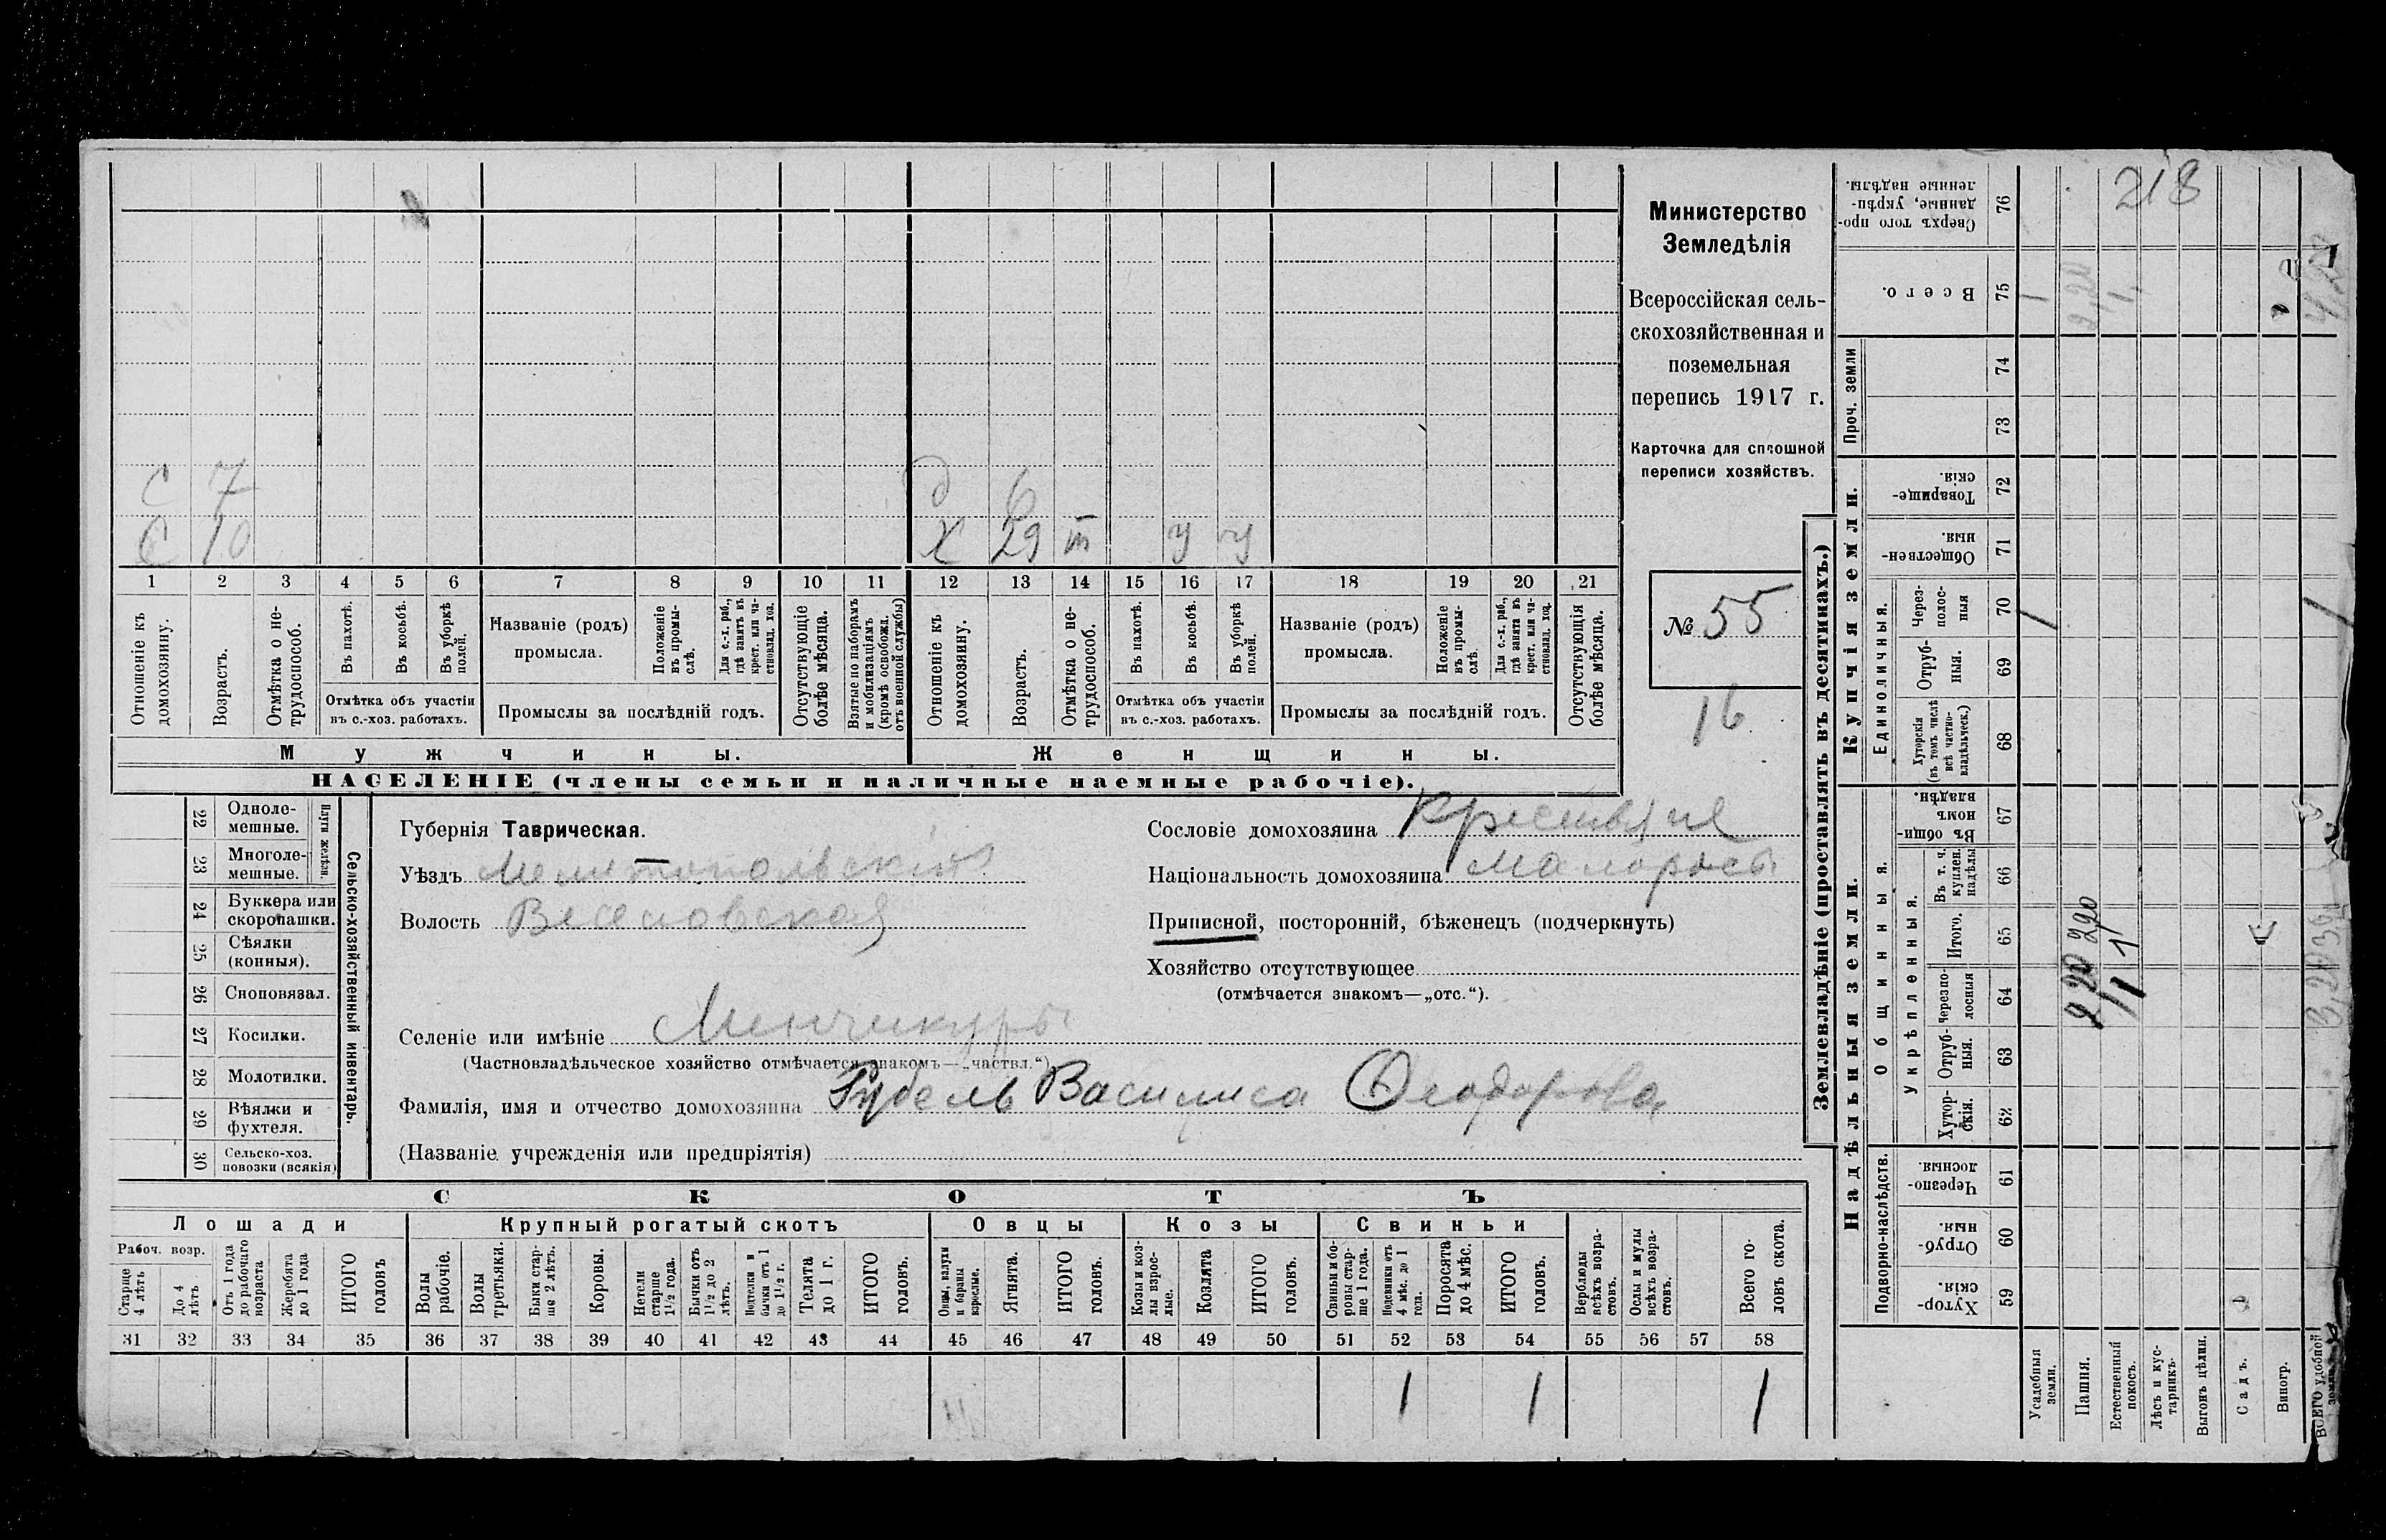 218
Министерство
Земледѣлія
Всероссійская сель-
скохозяйственная и
поземельная
перепись 1917 г.
Карточка для сплошной
переписи хозяйствъ.
№ 55
16
С 7 д 6
С 10 Х 29 т у у
1 2 3 4 5 6 7 8 9 10 11 12 13 14 15 16 17 18 19 20 21
Отношеніе къ домохозяину.
Возрастъ.
Отмѣтка о не-трудоспособ.
Въ пахотѣ.
Въ косьбѣ.
Въ уборкѣ полей.
Отмѣтка объ участіи
въ с.-хоз. работахъ.
Названіе (родъ)
промысла.
Положеніе въ промы-слѣ.
Для с.-х. раб., гдѣ занятъ въ крест. или ча-стновлад. хоз.
Промыслы за послѣдній годъ.
Отсутствующіе болѣе мѣсяца.
Взятые по наборамъ и мобилизаціямъ (кромѣ освобожд. отъ военной службы)
Отношеніе къ домохозяину.
Возрастъ.
Отмѣтка о не-трудоспособ.
Въ пахотѣ.
Въ косьбѣ.
Въ уборкѣ полей.
Отмѣтка объ участіи
въ с.-хоз. работахъ.
Названіе (родъ)
промысла.
Положеніе въ промы-слѣ.
Для с.-х. раб., гдѣ занята въ крест. или ча-стновлад. хоз.
Промыслы за послѣдній годъ.
Отсутствующія болѣе мѣсяца.
Мужчины.
Женщины.
НАСЕЛЕНІЕ (члены семьи и наличные наемные рабочіе).
Сельско-хозяйственный инвентарь.
Плуги желѣзн.
22 Одноле-мешные.
23 Многоле-мешные.
24 Буккера или скоропашки.
25 Сѣялки (конныя).
26 Сноповязал.
27 Косилки.
28 Молотилки.
29 Вѣялки и фухтеля.
30 Сельско-хоз. повозки (всякія)
Губернія Таврическая.
Уѣздъ Мелитопольскій
Волость Веселовская
Сословіе домохозяина Крестьяне
Національность домохозяина Малоросы
Приписной, посторонній, бѣженецъ (подчеркнуть)
Хозяйство отсутствующее
(отмѣчается знакомъ—„отс.“).
Селеніе или имѣніе Менчикуры
(Частновладѣльческое хозяйство отмѣчается знакомъ—„частвл.“)
Фамилія, имя и отчество домохозяина Губель Василиса Феодорова
(Названіе учрежденія или предпріятія)
СКОТЪ
Лошади
Крупный рогатый скотъ
Овцы
Козы
Свиньи
Рабоч. возр.
Старше 4 лѣтъ
До 4 лѣтъ
Отъ 1 года до рабочаго возраста
Жеребята до 1 года
ИТОГО головъ
Волы рабочіе.
Волы третьяки.
Быки стар-ше 2 лѣтъ.
Коровы.
Нетели старше 1½ года.
Бычки отъ 1½ до 2 лѣтъ.
Подтелки и бычки отъ 1 до 1½ г.
Телята до 1 г.
ИТОГО головъ.
Овцы, валухи и бараны взрослые.
Ягнята.
ИТОГО головъ.
Козы и коз-лы взрос-лые.
Козлята
ИТОГО головъ.
Свиньи и бо-ровы стар-ше 1 года.
Подсвинки отъ 4 мѣс. до 1 года.
Поросята до 4 мѣс.
ИТОГО головъ.
Верблюды всѣхъ возра-стовъ.
Ослы и мулы всѣхъ возра-стовъ.
Всего го-ловъ скота.
31 32 33 34 35 36 37 38 39 40 41 42 43 44 45 46 47 48 49 50 51 52 53 54 55 56 57 58
1 1 1
Землевладѣніе (проставлять въ десятинахъ.)
Надѣльныя земли.
Купчія земли.
Проч. земли
Подворно-наслѣдств.
Общинныя.
Укрѣпленныя.
Единоличныя.
Хутор-скія. 59
Отруб-ныя. 60
Черезпо-лосныя. 61
Хутор-скія. 62
Отруб-ныя. 63
Черезпо-лосныя 64
Итого. 65
Въ т. ч. куплен. надѣлы 66
Въ общин-номъ владѣн. 67
Хуторскія (въ томъ числѣ всѣ частно-владѣльческ.) 68
Отруб-ныя. 69
Через-полос-ныя 70
Обществен-ныя. 71
Товарище-скія. 72
73
74
Всего. 75
Сверхъ того про-данные, укрѣп-ленные надѣлы. 76
Усадебныя земли.
Пашня.
Естественный покосъ.
Лѣсъ и кус-тарникъ.
Выгонъ цѣлин.
Садъ.
Виногр.
ВСЕГО удобной
220 220
1 1
1
1